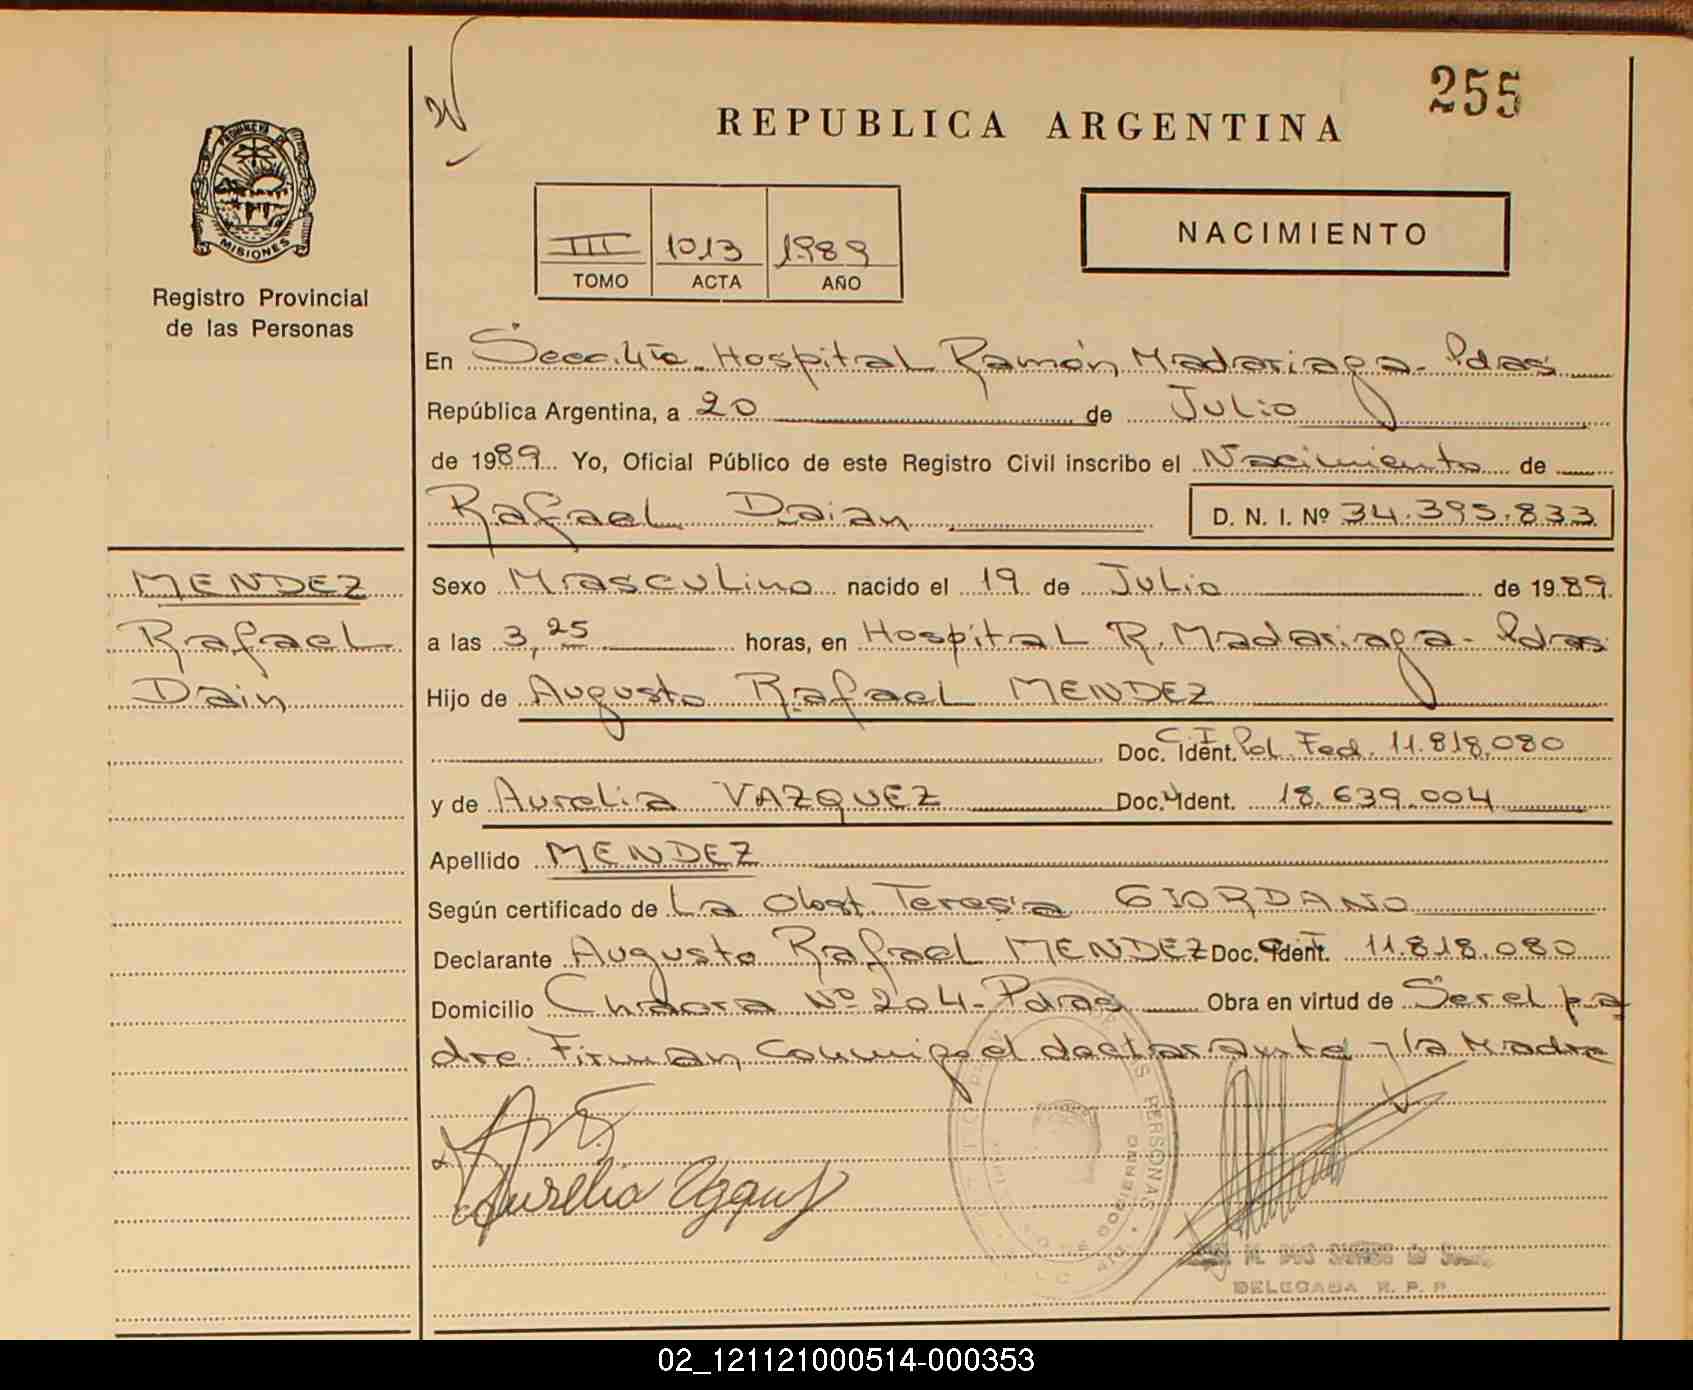 255
REPUBLICA ARGENTINA
PROVINCIA DE
MISIONES
Registro Provincial
de las Personas
III 1013 1989
TOMO ACTA AÑO
NACIMIENTO
En Secc. 4ta. Hospital Ramón Madariaga - Pdas
República Argentina, a 20 de Julio
de 1989. Yo, Oficial Público de este Registro Civil inscribo el Nacimiento de
Rafael Daian D. N. I. Nº 34.395.833
MENDEZ
Rafael
Dain
Sexo Masculino nacido el 19 de Julio de 1989.
a las 3,25 horas, en Hospital R. Madariaga - Pdas
Hijo de Augusto Rafael MENDEZ
Doc. Ident. C.I. Pol. Fed. 11.818.080
y de Aurelia VAZQUEZ Doc. Ident. 18.639.004
Apellido MENDEZ
Según certificado de La Obst. Teresa GIORDANO
Declarante Augusto Rafael MENDEZ Doc. Ident. CI 11.818.080
Domicilio Chacra Nº 204 - Pdas Obra en virtud de Ser el pa
dre. Firman conmigo el declarante y la Madre
Aurelia
PERSONAS
DE GOBIERNO
DELEGADA R. P. P.
02_121121000514-000353